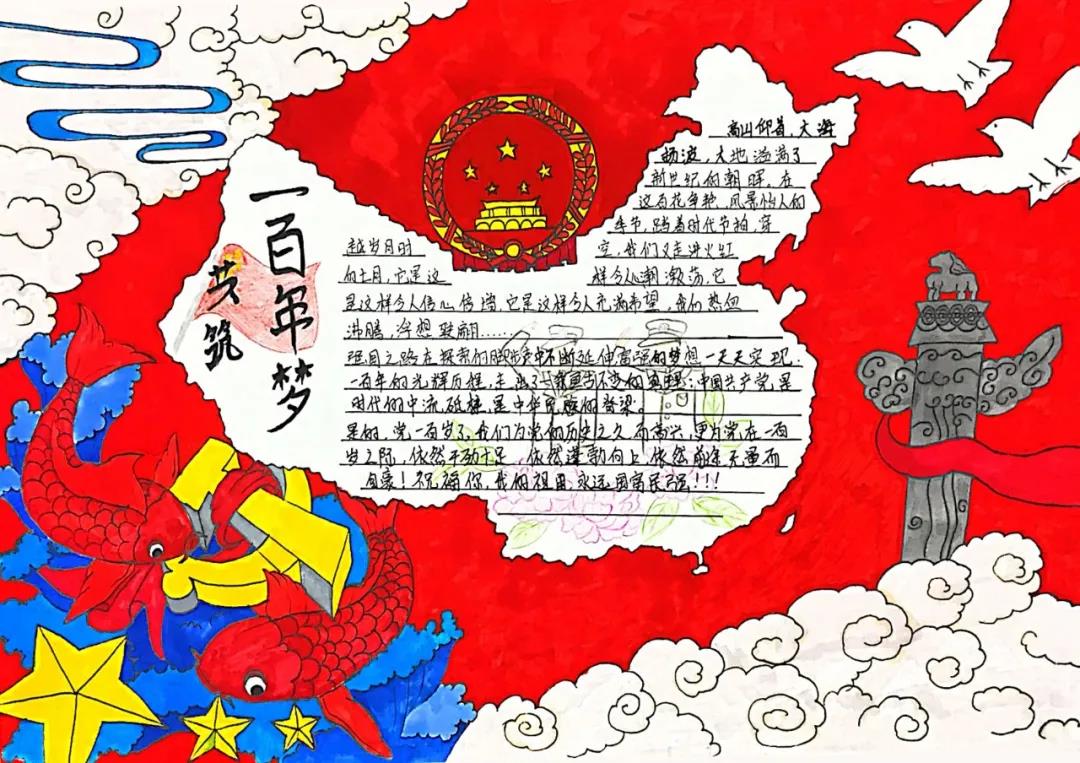 共筑
一百年梦
高山仰首,大海
扬波,大地溢满了
新世纪的朝晖。在
这百花争艳,风景怡人的
季节,踏着时代节拍,穿
越岁月时空,我们又走进火红
的七月,它是这样令人心潮激荡,它
是这样令人信心倍增,它是这样令人充满希望,我们热血
沸腾,浮想联翩......
强国之路在探索的脚步中不断延伸富强的梦想一天天实现.
一百年的光辉历程,走出了一条亘古不变的真理:中国共产党,是
时代的中流砥柱,是中华民族的脊梁。
是的,党一百岁了,我们为党的历史之久而高兴,更为党在一百
岁之际,依然干劲十足,依然蓬勃向上,依然前途无量而
自豪!祝福你,我的祖国永远国富民强!!!